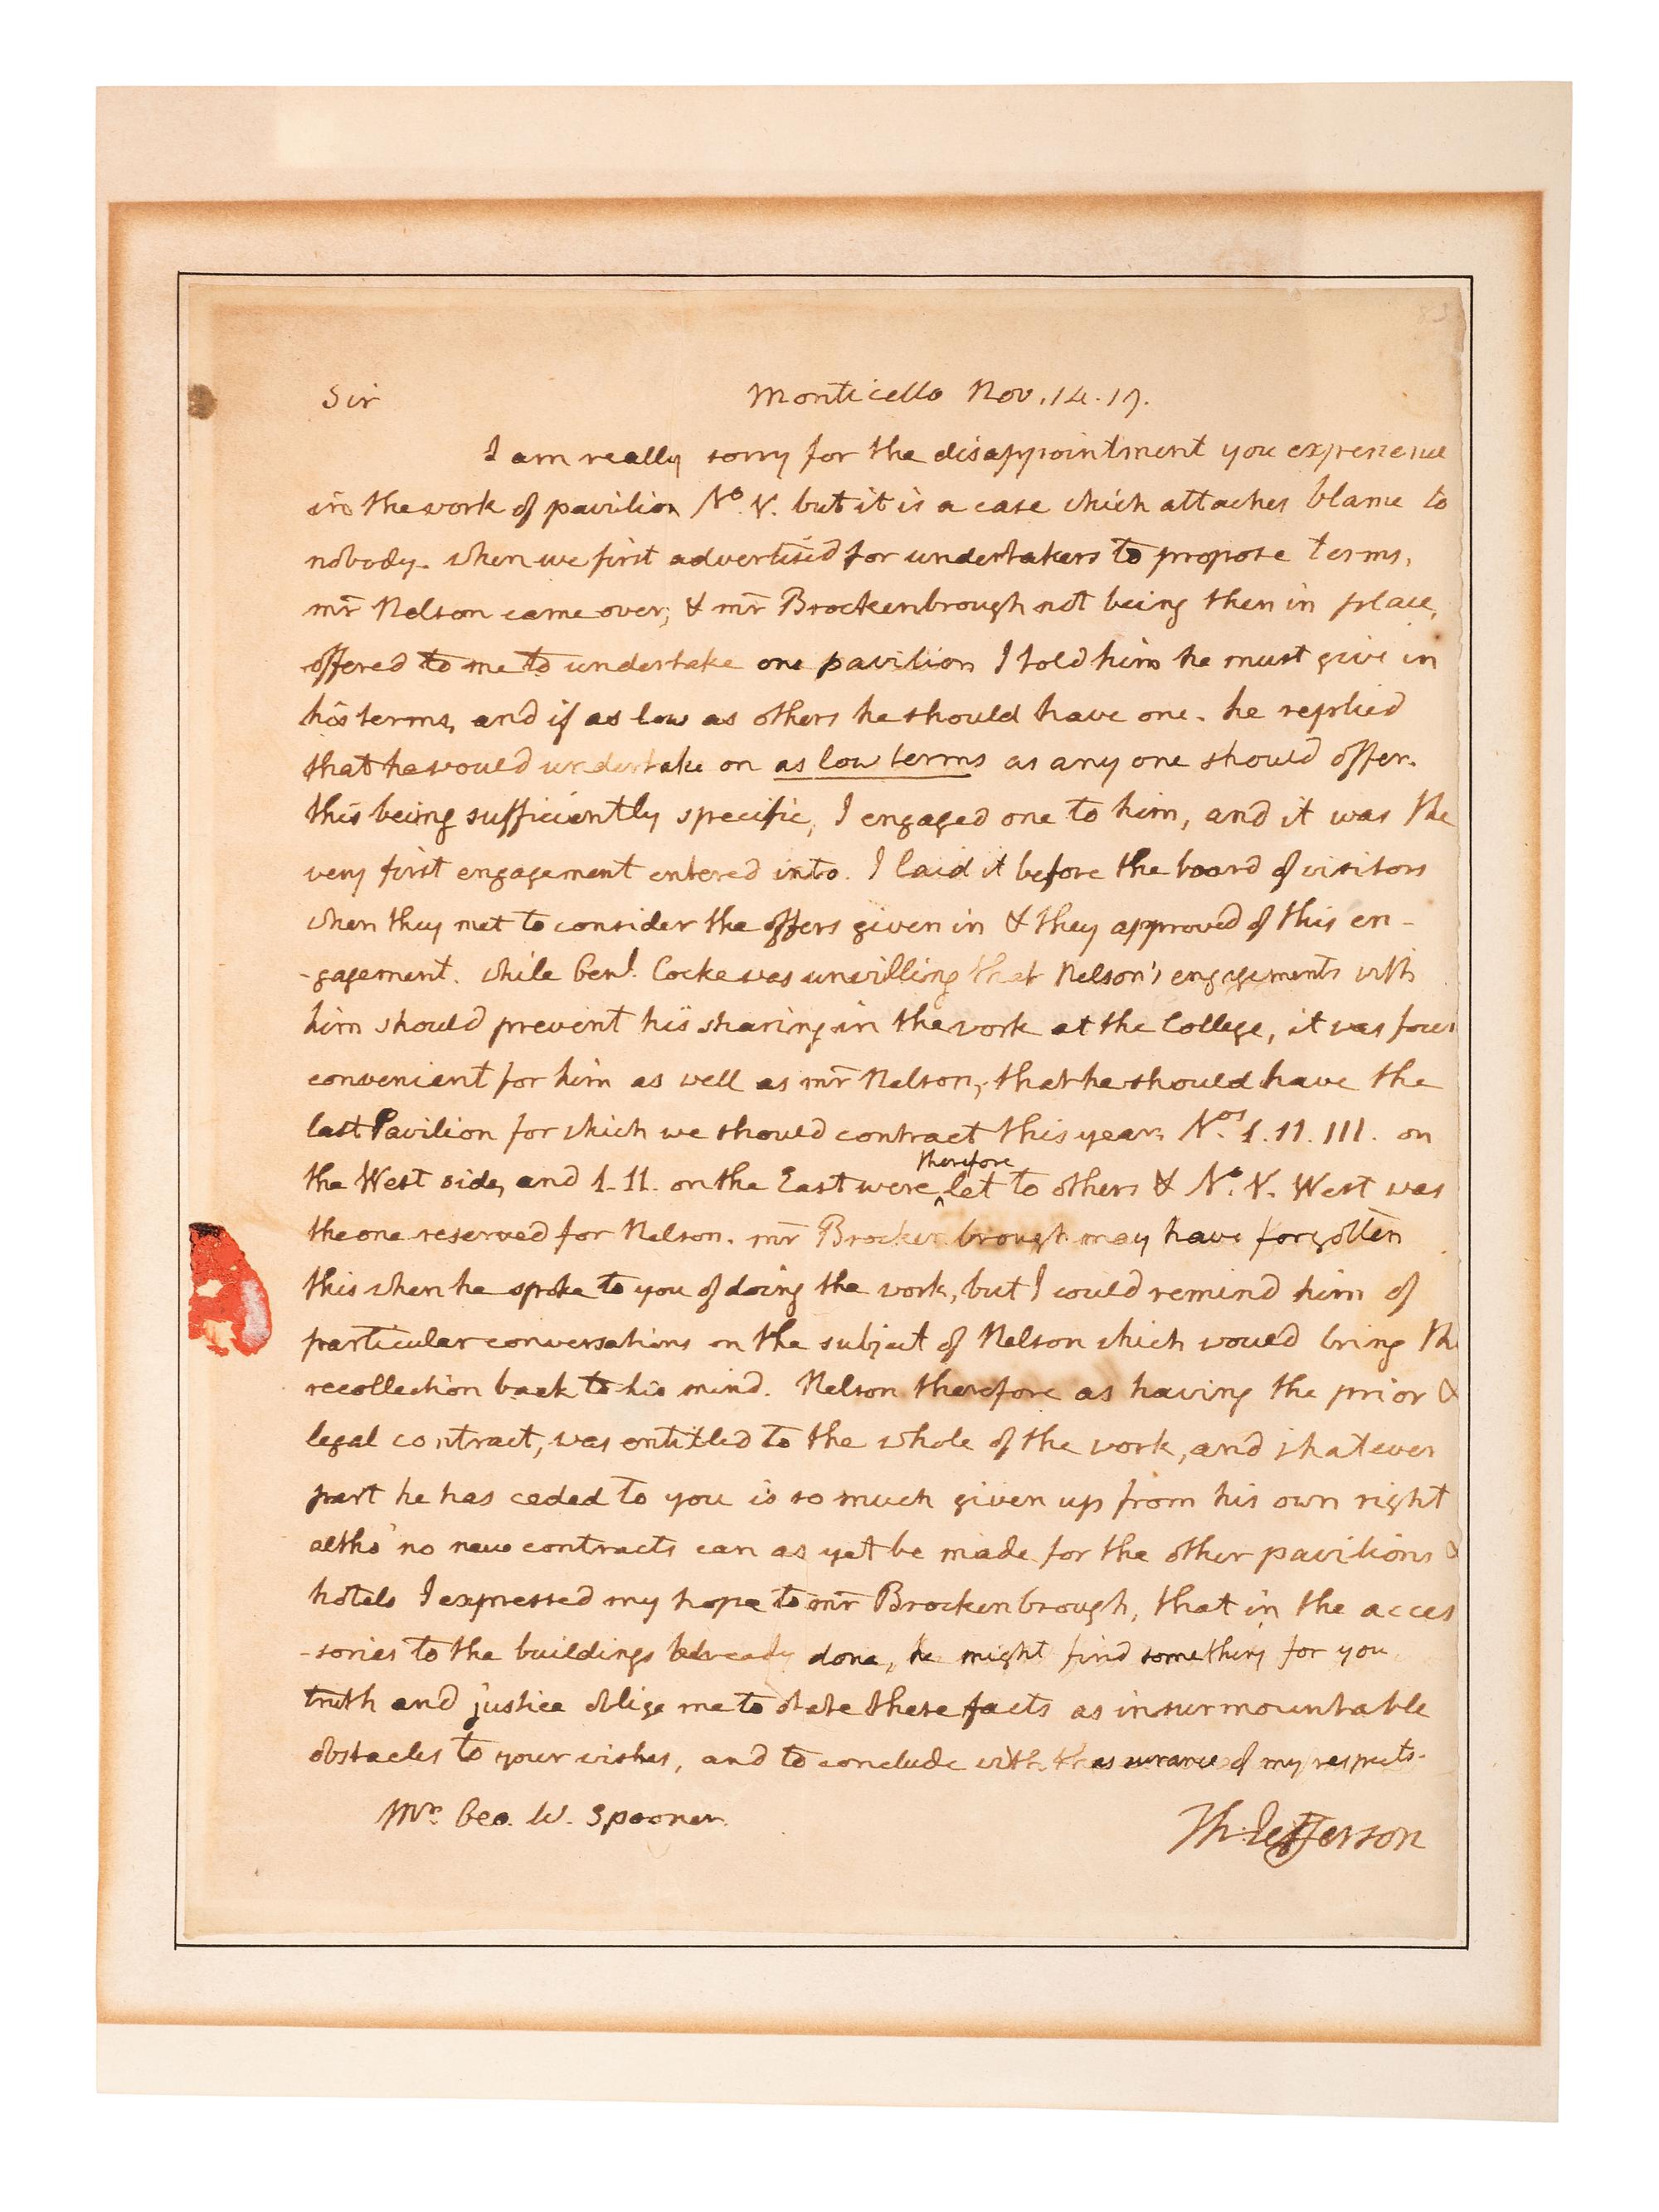 Sir Monticello Nov. 14. 19.
I am really sorry for the disappointment you experience
in the work of pavilion No. V. but it is a case which attaches blame to
nobody. when we first advertised for undertakers to propose terms,
mr Nelson came over, & mr Brockenbrough not being then in place,
offered to me to undertake one pavilion I told him he must give in
his terms, and if as low as others he should have one. he replied
that he would undertake on as low terms as any one should offer.
this being sufficiently specific, I engaged one to him, and it was the
very first engagement entered into. I laid it before the board of visitors
when they met to consider the offers given in & they approved of this en-
-gagement. while Genl. Cocke was unwilling that Nelson's engagements with
him should prevent his sharing in the work at the College, it was foun
convenient for him as well as mr Nelson, that he should have the
last Pavilion for which we should contract this year. Nos. I. II. III. on
therefore
the West side, and I. II. on the East were ^ let to others & No. V. West was
the one reserved for Nelson. mr Brockenbrough may have forgotten
this when he spoke to you of doing the work, but I could remind him of
particular conversations on the subject of Nelson which would bring th
recollection back to his mind. Nelson therefore as having the prior &
legal contract, was entitled to the whole of the work, and whatever
part he has ceded to you is so much given up from his own right
altho' no new contracts can as yet be made for the other pavilions &
hotels I expressed my hope to mr Brockenbrough, that in the acces
-sories to the buildings already done, he might find something for you
truth and justice oblige me to state these facts as insurmountable
obstacles to your wishes, and to conclude with the assurance of my respects.
Mr. Geo. W. Spooner. Th: Jefferson